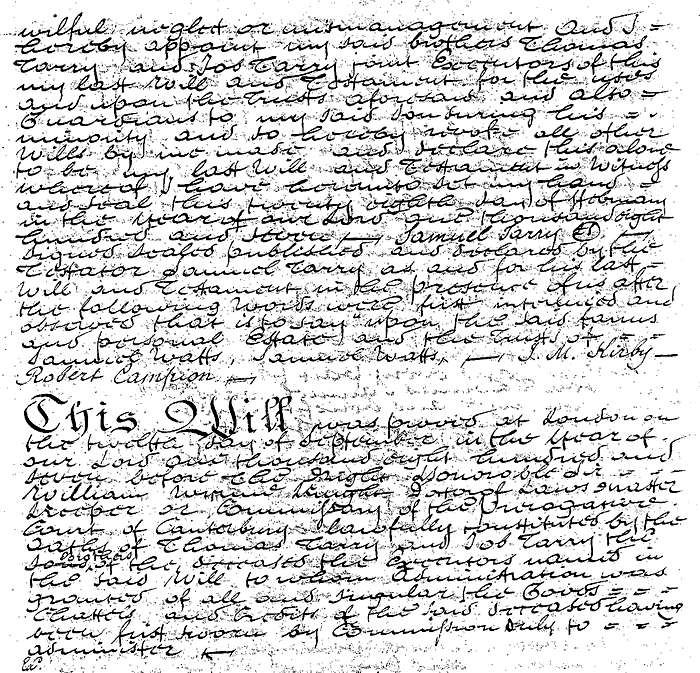 wilful neglect or mismanagement And I =
hereby appoint my said brothers Thomas
Tarry and Job Tarry joint Executors of this
my last Will and Testament for the uses
and upon the Trusts aforesaid and also =
Guardians to my said Son during his = -
minority and do hereby revoke all other
Wills by me made and declare this alone
to be my last Will and Testament in Witness
whereof I have hereunto set my hand =
and seal this twenty eighth day of February
in the Year of our Lord one thousand eight
hundred and seven — Samuel Tarry —
Signed Sealed published and declared by the
Testator Samuel Tarry as and for his last =
Will and Testament in the presence of us after
the following Words were first interlined and
observed that is to say upon the said farms
and personal Estate and the Trusts of —
Samuel Watts, Samuel Watts, — J. M. Kirby —
Robert Campion —
This Will was proved at London on
the twelfth day of September in the Year of -
our Lord one thousand eight hundred and
seven before the Right Honorable Sir - - -
William Wynne Knight Doctor of Laws Master
Keeper or Commissary of the Prerogative
Court of Canterbury lawfully constituted by the
Oaths of Thomas Tarry and Job Tarry the
of the deceased the Executors named in
the said Will to whom Administration was
granted of all and singular the Goods = = =
Chattels and Credits of the said deceased having
been first sworn by Commission duly to = = =
administer —